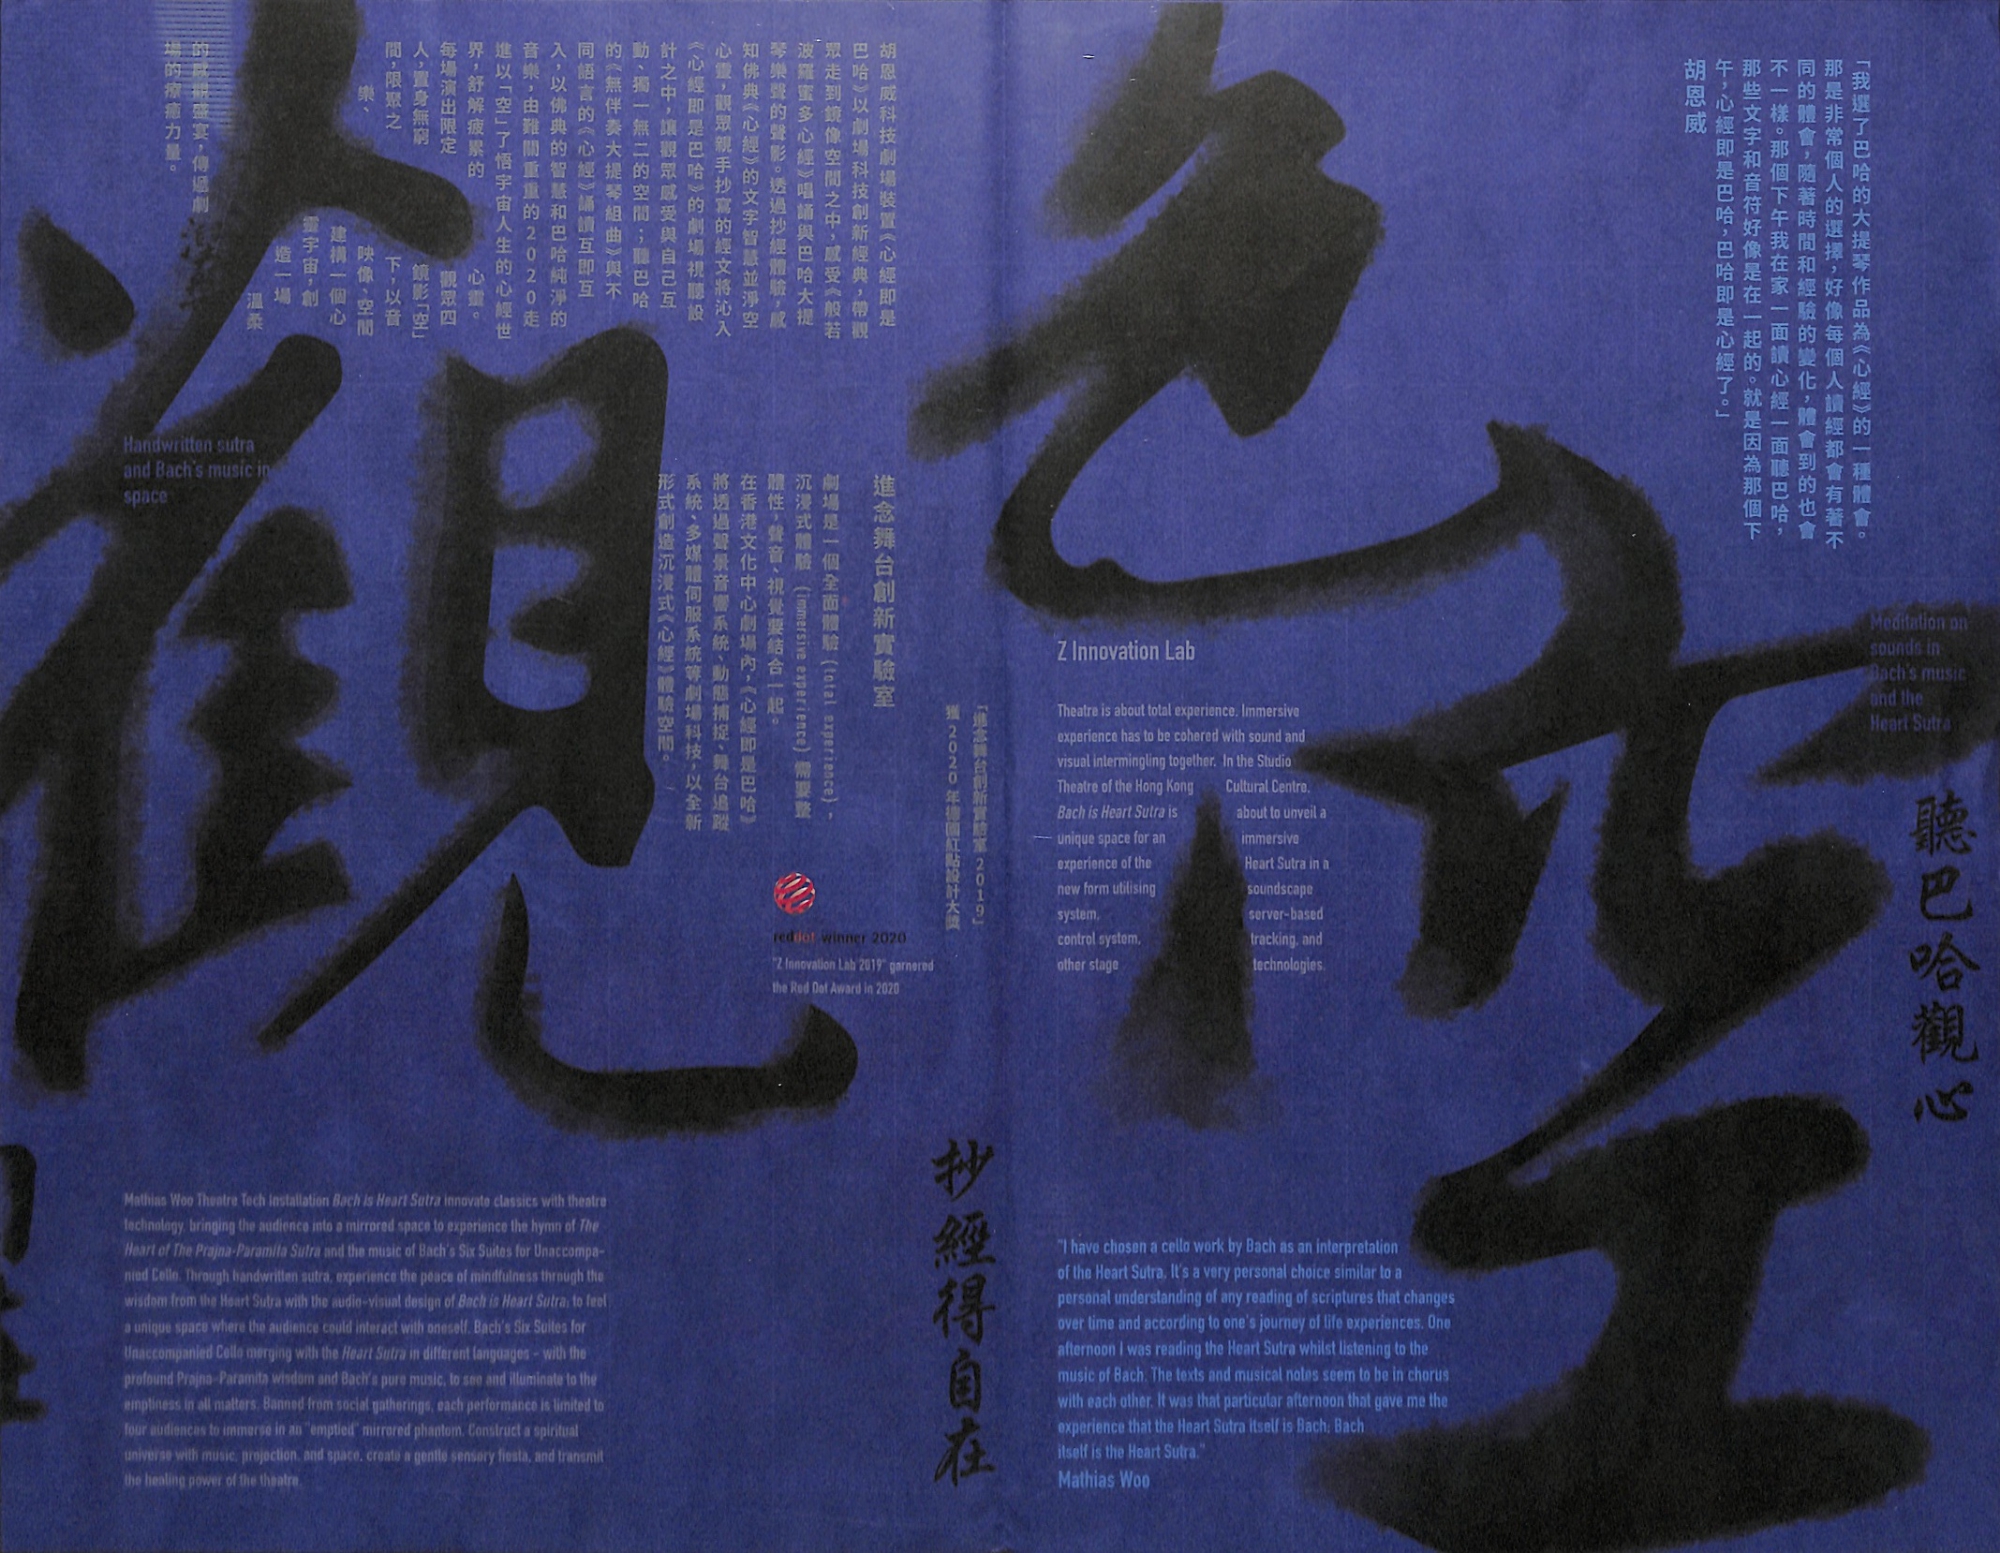 「我選了巴哈的大提琴作品為《心經》的一種體會。
那是非常個人的選擇，好像每個人讀經都會有著不
同的體會，隨著時間和經驗的變化，體會到的也會
不一樣。那個下午我在家一面讀心經一面聽巴哈，
那些文字和音符好像是在一起的。就是因為那個下
午，心經即是巴哈，巴哈即是心經了。」
胡恩威
Meditation on
sounds in
Bach's music
and the
Heart Sutra
聽巴哈觀心
色
空
Z Innovation Lab
Theatre is about total experience. Immersive
experience has to be cohered with sound and
visual intermingling together. In the Studio
Theatre of the Hong Kong Cultural Centre,
Bach is Heart Sutra is about to unveil a
unique space for an immersive
experience of the Heart Sutra in a
new form utilising soundscape
system, server-based
control system, tracking, and
other stage technologies.
"I have chosen a cello work by Bach as an interpretation
of the Heart Sutra. It's a very personal choice similar to a
personal understanding of any reading of scriptures that changes
over time and according to one's journey of life experiences. One
afternoon I was reading the Heart Sutra whilst listening to the
music of Bach. The texts and musical notes seem to be in chorus
with each other. It was that particular afternoon that gave me the
experience that the Heart Sutra itself is Bach; Bach
itself is the Heart Sutra."
Mathias Woo
「進念舞台創新實驗室 2019」
獲 2020 年德國紅點設計大獎
抄經得自在
胡恩威科技劇場裝置《心經即是
巴哈》以劇場科技創新經典，帶觀
眾走到鏡像空間之中，感受《般若
波羅蜜多心經》唱誦與巴哈大提
琴樂聲的聲影。透過抄經體驗，感
知佛典《心經》的文字智慧並淨空
心靈，觀眾親手抄寫的經文將沁入
《心經即是巴哈》的劇場視聽設
計之中，讓觀眾感受與自己互
動、獨一無二的空間；聽巴哈
的《無伴奏大提琴組曲》與不
同語言的《心經》誦讀互即互
入，以佛典的智慧和巴哈純淨的
音樂，由難關重重的2020走
進以「空」了悟宇宙人生的心經世
界，舒解疲累的心靈。
每場演出限定觀眾四
人，置身無窮鏡影「空」
間，限聚之下，以音
樂、映像、空間
建構一個心
靈宇宙，創
造一場
溫柔
的感觀盛宴，傳遞劇
場的療癒力量。
進念舞台創新實驗室
劇場是一個全面體驗 (total experience)，
沉浸式體驗 (immersive experience) 需要整
體性，聲音、視覺要結合一起。
在香港文化中心劇場內，《心經即是巴哈》
將透過聲景音響系統、動態捕捉、舞台追蹤
系統、多媒體伺服系統等劇場科技，以全新
形式創造沉浸式《心經》體驗空間。
觀
reddot winner 2020
"Z Innovation Lab 2019" garnered
the Red Dot Award in 2020
Handwritten sutra
and Bach's music in
space
Mathias Woo Theatre Tech Installation Bach is Heart Sutra innovate classics with theatre
technology, bringing the audience into a mirrored space to experience the hymn of The
Heart of The Prajna-Paramita Sutra and the music of Bach's Six Suites for Unaccompa-
nied Cello. Through handwritten sutra, experience the peace of mindfulness through the
wisdom from the Heart Sutra with the audio-visual design of Bach is Heart Sutra; to feel
a unique space where the audience could interact with oneself. Bach's Six Suites for
Unaccompanied Cello merging with the Heart Sutra in different languages – with the
profound Prajna-Paramita wisdom and Bach's pure music, to see and illuminate to the
emptiness in all matters. Banned from social gatherings, each performance is limited to
four audiences to immerse in an "emptied" mirrored phantom. Construct a spiritual
universe with music, projection, and space, create a gentle sensory fiesta, and transmit
the healing power of the theatre.